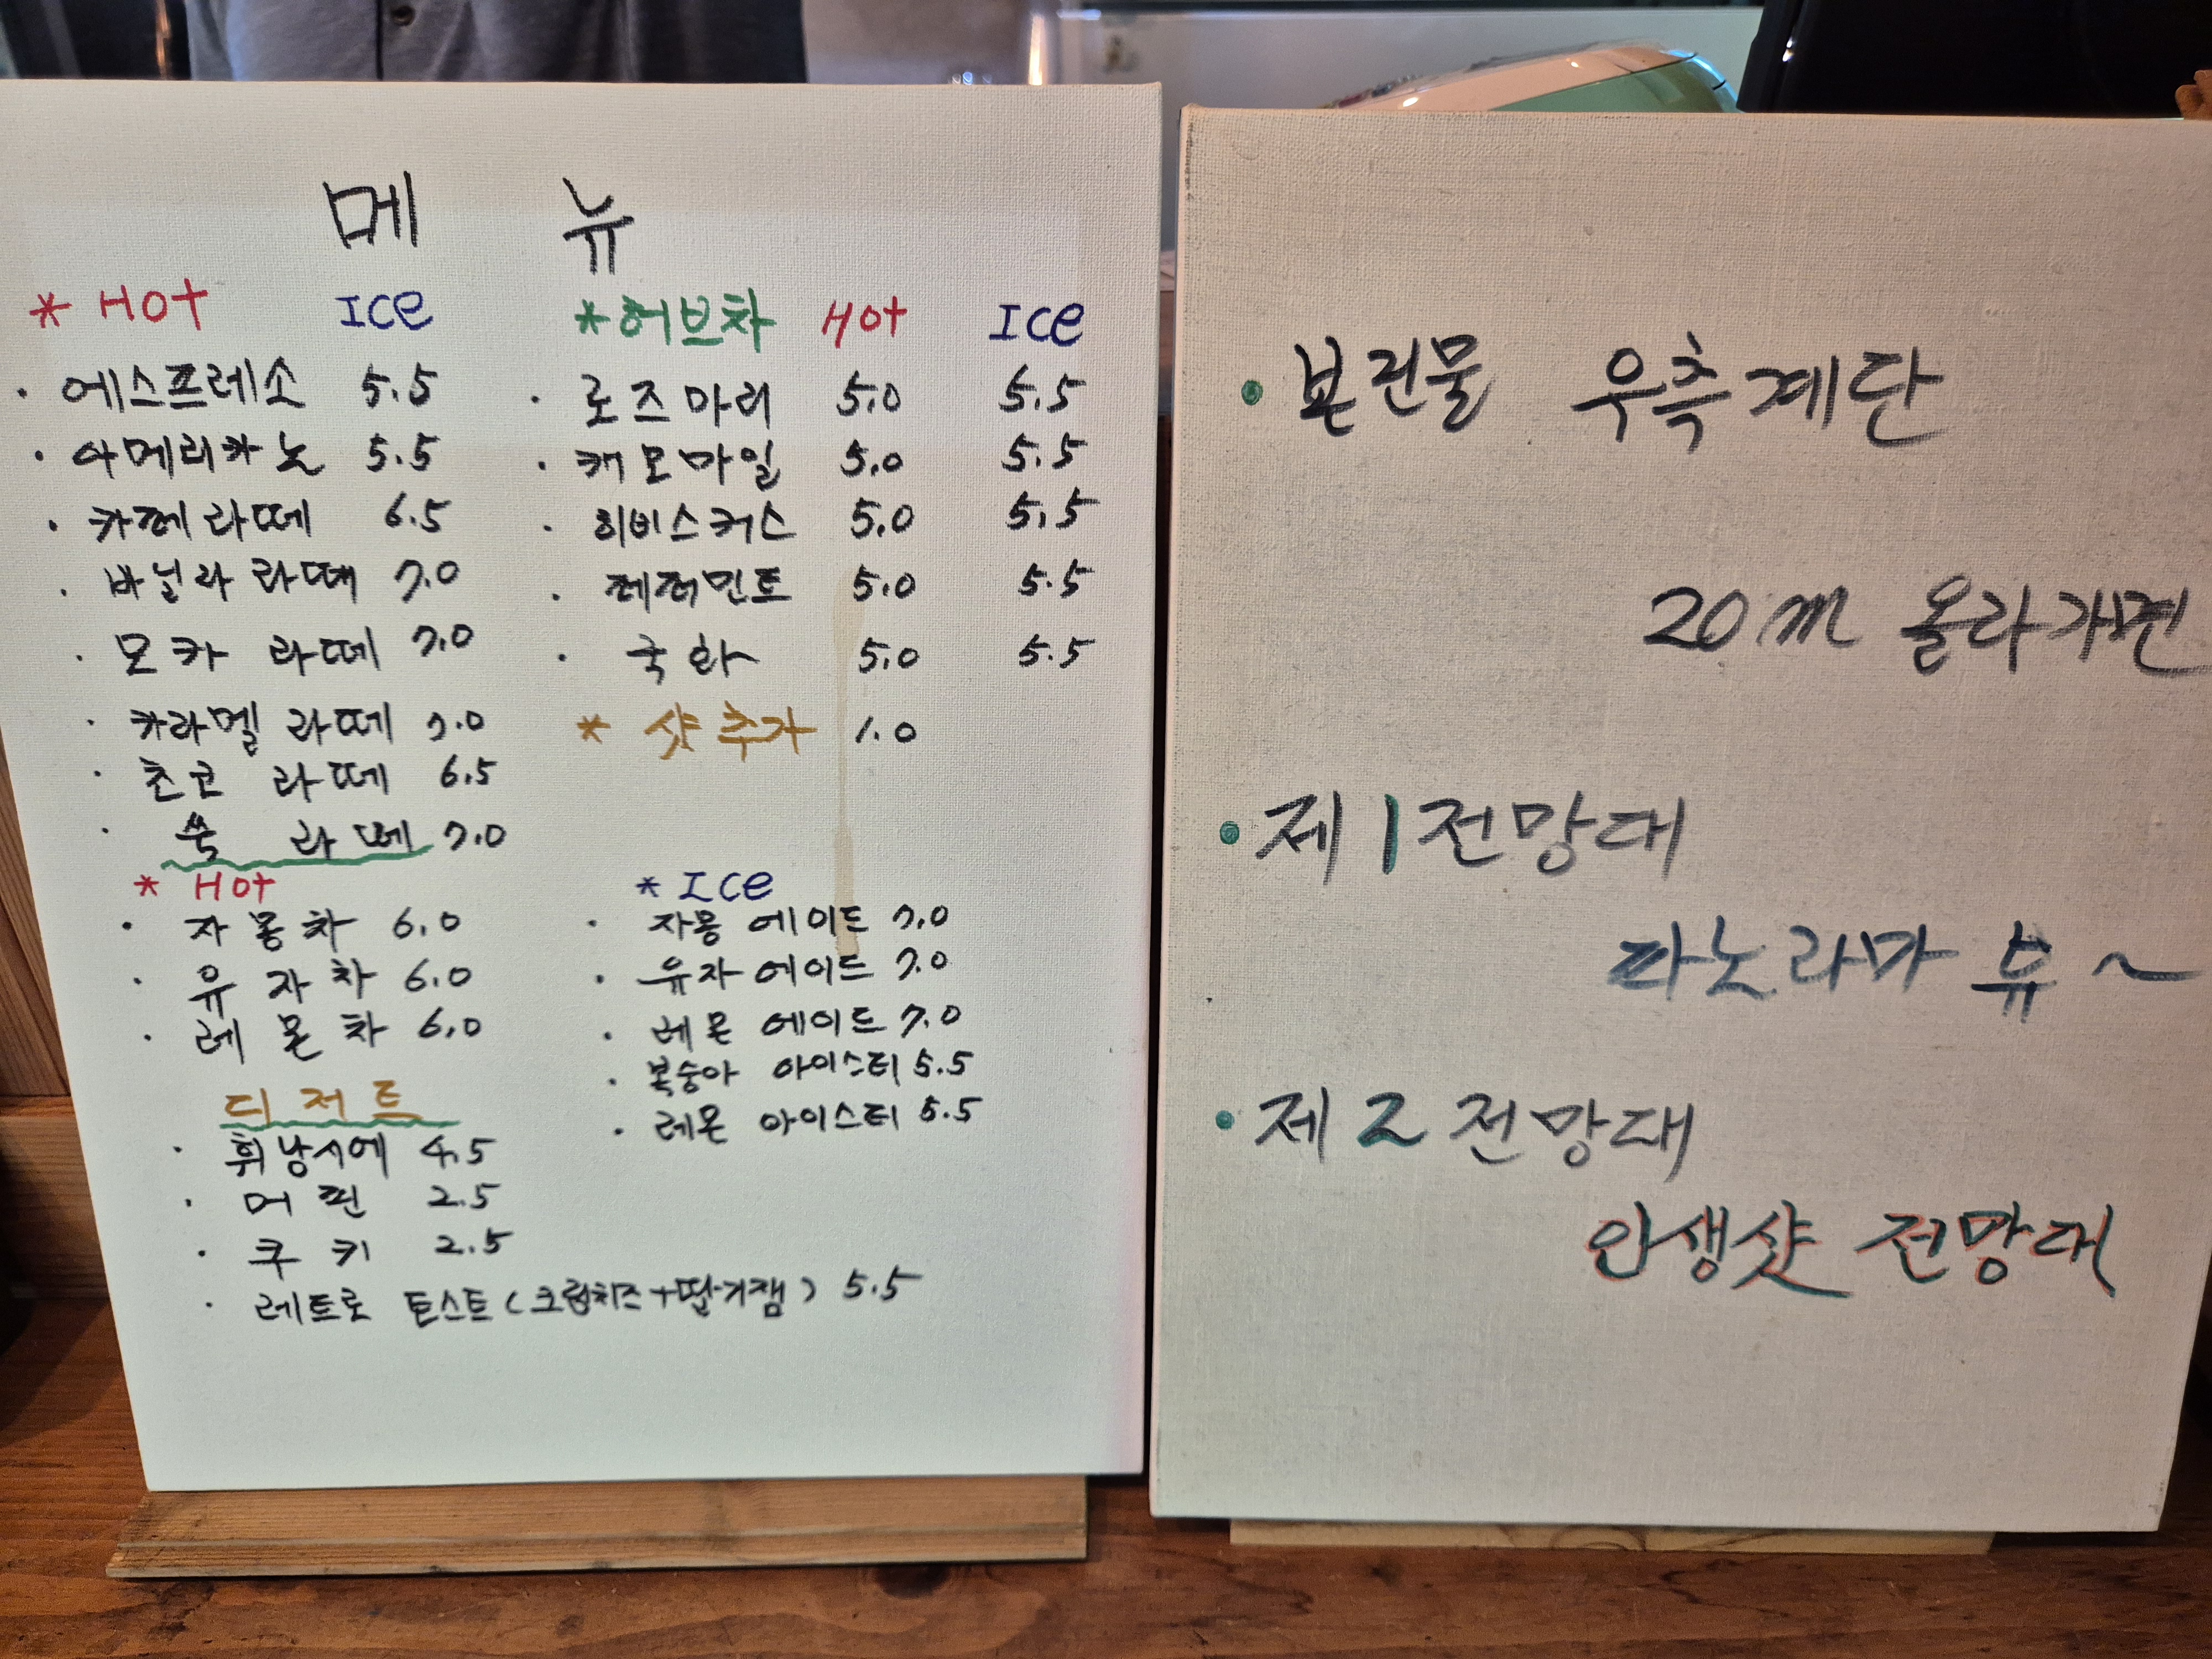 메 뉴
* Hot ICe
· 에스프레소 5.5
· 아메리카노 5.5
· 카페라떼 6.5
· 바닐라 라떼 7.0
· 모카 라떼 7.0
· 카라멜 라떼 7.0
· 초코 라떼 6.5
· 쑥 라떼 7.0
* 허브차 Hot ICe
· 로즈마리 5.0 5.5
· 캐모마일 5.0 5.5
· 히비스커스 5.0 5.5
· 페퍼민트 5.0 5.5
· 국화 5.0 5.5
* 샷추가 1.0
* Hot
· 자몽차 6.0
· 유자차 6.0
· 레몬차 6.0
* ICe
· 자몽 에이드 7.0
· 유자에이드 7.0
· 레몬 에이드 7.0
· 복숭아 아이스티 5.5
· 레몬 아이스티 5.5
디저트
· 휘낭시에 4.5
· 머핀 2.5
· 쿠키 2.5
· 레트로 토스트(크림치즈+딸기잼) 5.5
· 본건물 우측계단
20m 올라가면
· 제1전망대
파노라마 뷰~
· 제2전망대
인생샷 전망대